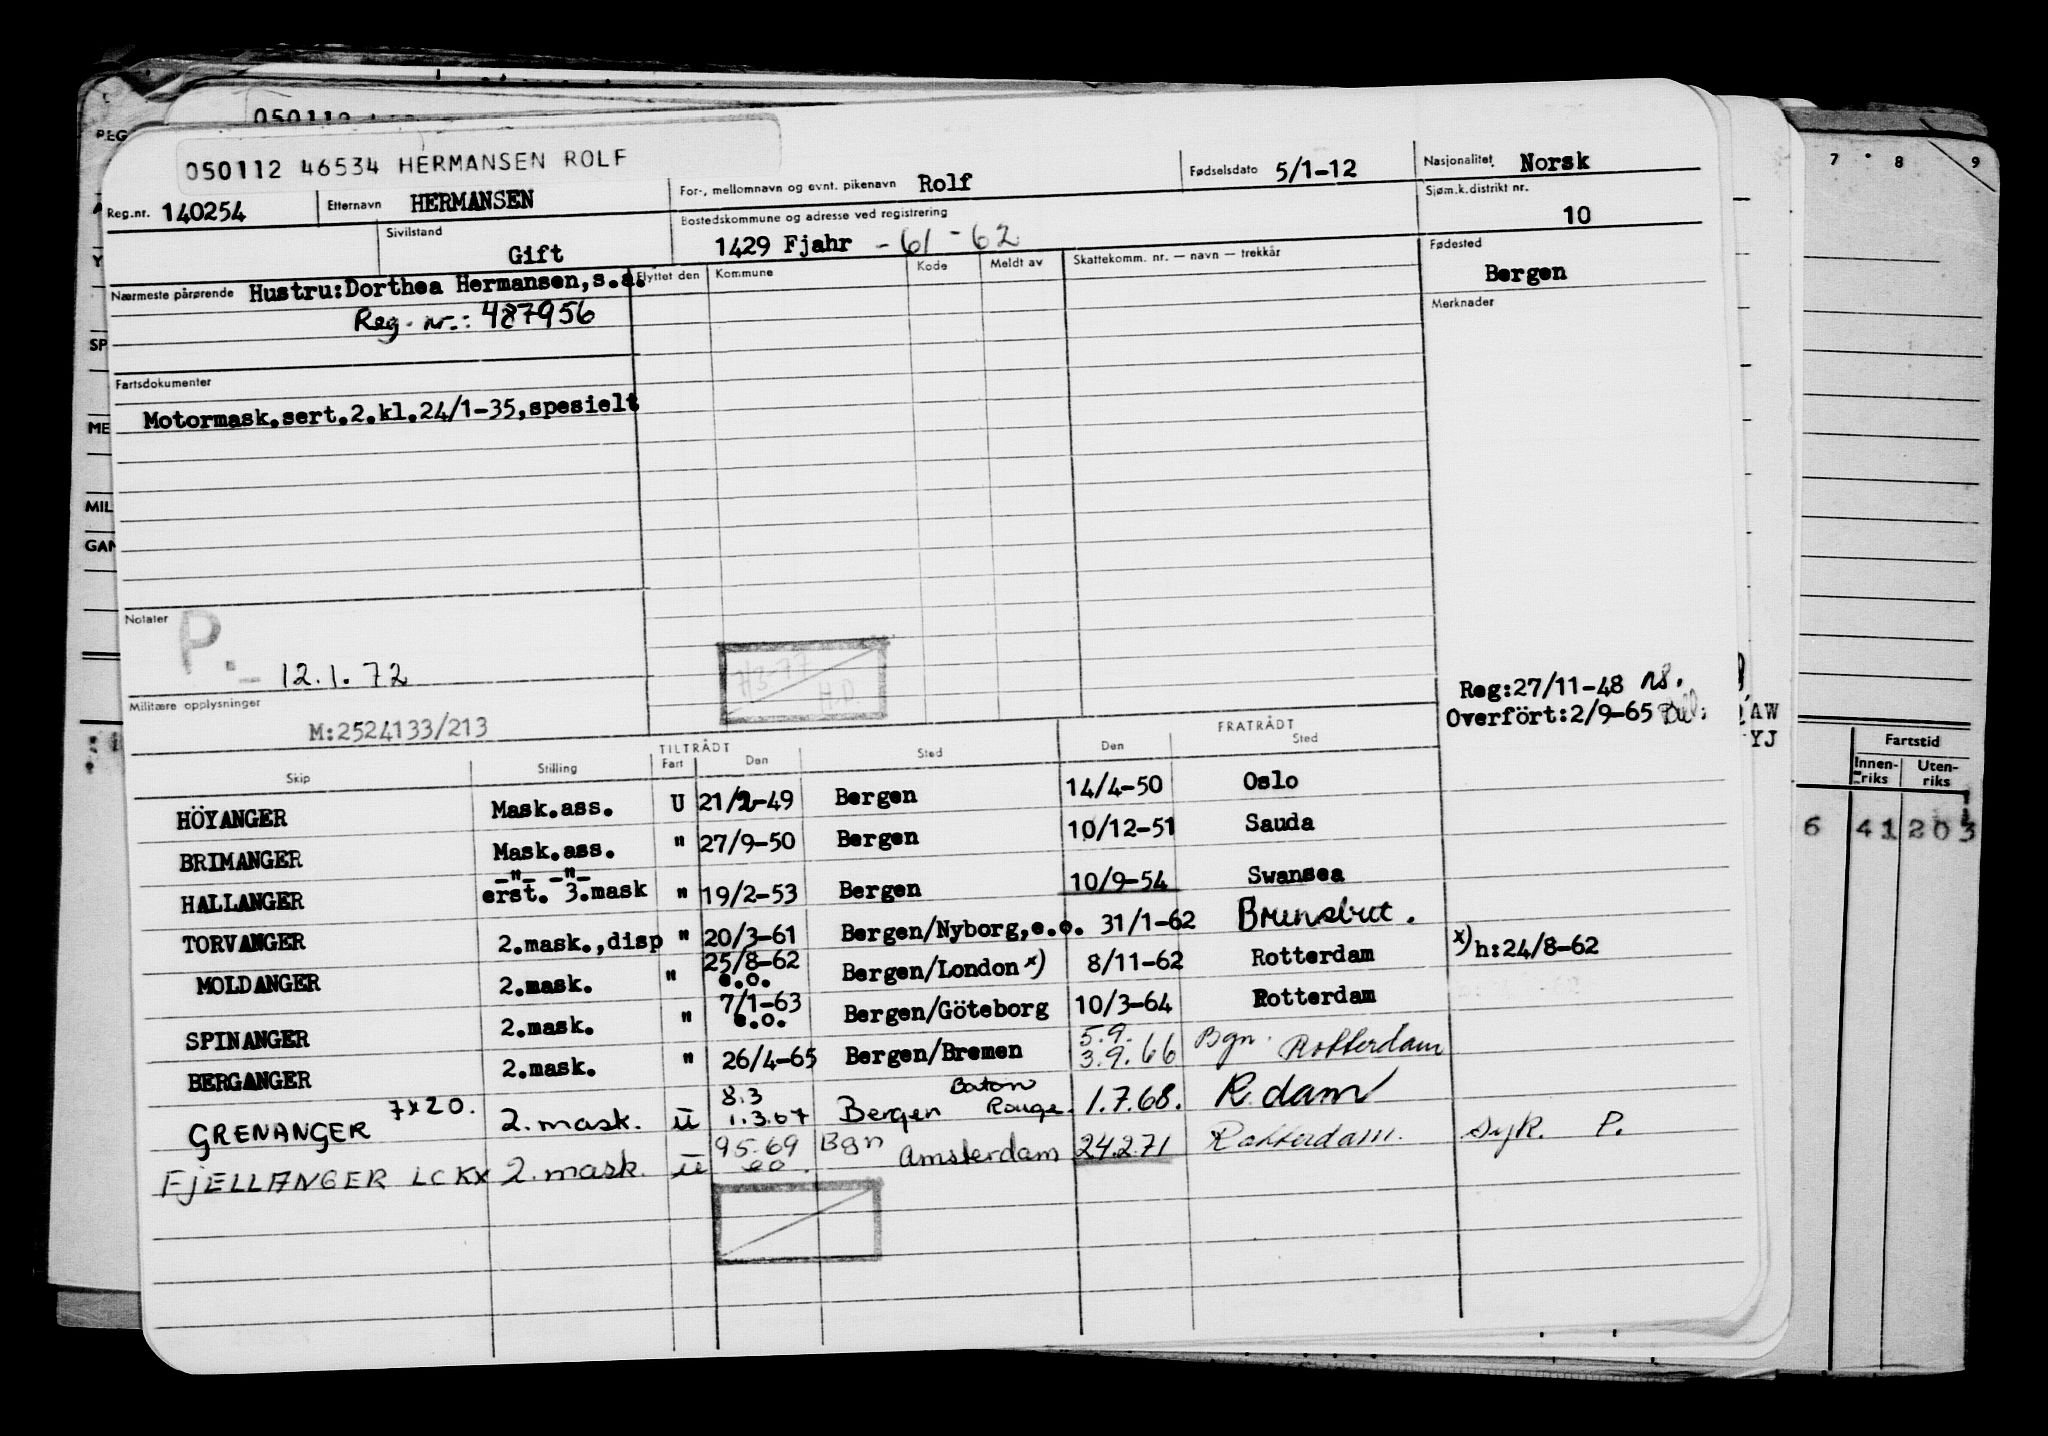 050112 46534 HERMANSEN ROLF
Reg.nr. 140254 Etternavn HERMANSEN For-, mellomnavn og evnt. pikenavn Rolf Fødselsdato 5/1-12 Nasjonalitet Norsk
Sivilstand Gift Bostedskommune og adresse ved registrering 1429 Fjahr - 61 - 62 Sjøm.k.distrikt nr. 10
Nærmeste pårørende Hustru:Dorthea Hermansen,s.a. Flyttet den Kommune Kode Meldt av Skattekomm. nr. — navn — trekkår Fødested Bergen
Reg. nr.: 487956 Merknader
Fartsdokumenter
Motormask.sert.2.kl.24/1-35,spesielt
Notater
P. - 12.1.72
7/3-77
H.D.
Reg:27/11-48
Overfört:2/9-65
Militære opplysninger
M:2524133/213
TILTRÅDT FRATRÅDT
Skip Stilling Fart Den Sted Den Sted
HÖYANGER Mask.ass. U 21/2-49 Bergen 14/4-50 Oslo
BRIMANGER Mask.ass. " 27/9-50 Bergen 10/12-51 Sauda
-"- -"-
HALLANGER erst. 3.mask " 19/2-53 Bergen 10/9-54 Swansea
TORVANGER 2.mask.,disp " 20/3-61 Bergen/Nyborg,e.o. 31/1-62 Brunsbut.
MOLDANGER 2.mask. " 25/8-62 e.o. Bergen/London x) 8/11-62 Rotterdam x) h:24/8-62
SPINANGER 2.mask. " 7/1-63 e.o. Bergen/Göteborg 10/3-64 Rotterdam
BERGANGER 2.mask. " 26/4-65 Bergen/Bremen 5.9. 3.9.66 Bgn. Rotterdam
GRENANGER 7x20. 2.mask. u 8.3 1.3.67 Bergen Baton Rouge. 1.7.68. R.dam
FJELLANGER LCKX 2.mask. u 9.5.69 eo. Bgn Amsterdam 24.2.71 Rotterdam. Syk. P.
050112
REG
Y
SP
ME
MIL
GAN
7 8 9
AW
YJ
Fartstid
Innen-riks Uten-riks
6 41 203